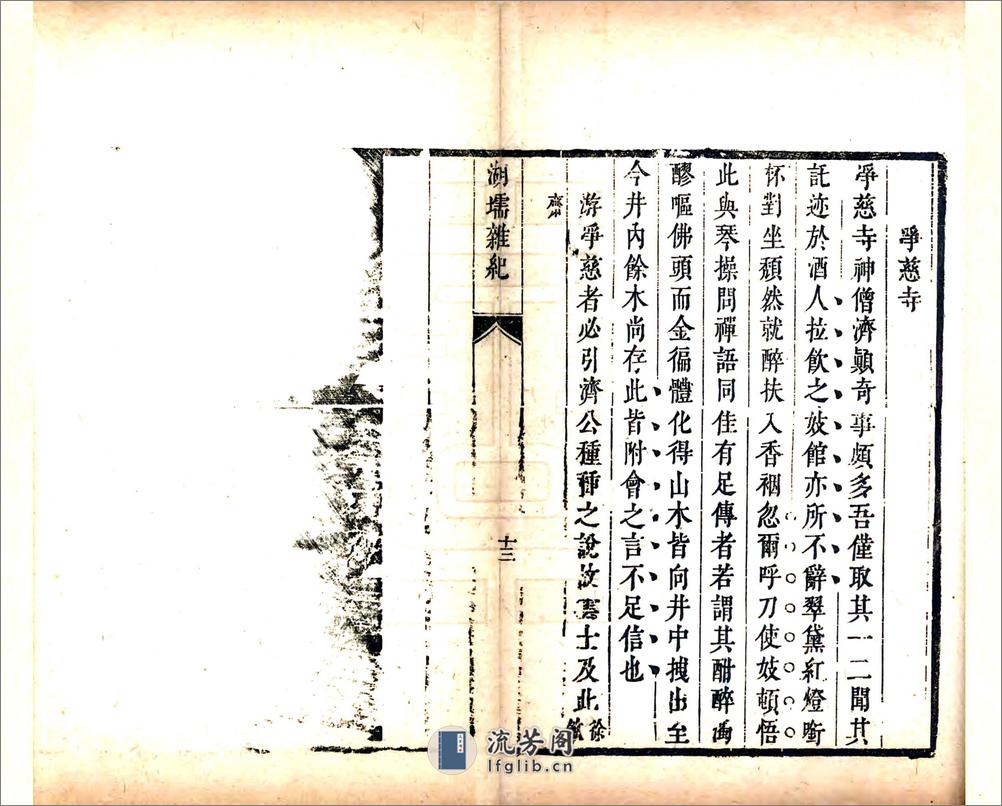 淨慈寺
淨慈寺神僧濟顛奇事頗多吾僅取其一二聞其
託迹於酒人拉飲之妓館亦所不辭翠黛紅燈銜
杯對坐頹然就醉扶入香裀忽爾呼刀使妓頓悟
此與琴操問禪語同佳有足傳者若謂其酣醉瀉
醪嘔佛頭而金徧體化得山木皆向井中拽出至
今井內餘木尚存此皆附會之言不足信也
游淨慈者必引濟公種種之說故雲士及此徐
齋
湖壖雜紀
十三
流芳阁
lfglib.cn